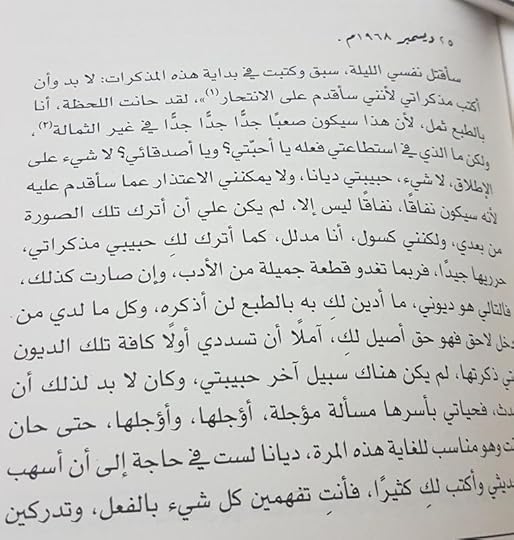 ٢٥ ديسمبر ١٩٦٨م.
سأقتل نفسي الليلة، سبق وكتبت في بداية هذه المذكرات: لا بد وأن
أكتب مذكراتي لأنني سأقدم على الانتحار(١)»، لقد حانت اللحظة، أنا
بالطبع ثمل، لأن هذا سيكون صعبًا جدًّا جدًّا جدًّا في غير الثمالة(٢)،
ولكن ما الذي في استطاعتي فعله يا أحبّتي؟ ويا أصدقائي؟ لا شيء على
الإطلاق، لا شيء، حبيبتي ديانا، ولا يمكنني الاعتذار عما سأقدم عليه
لأنه سيكون نفاقًا، نفاقًا ليس إلا، لم يكن علي أن أترك تلك الصورة
من بعدي، ولكنني كسول، أنا مدلل، كما أترك لكِ حبيبي مذكراتي،
حرريها جيدًا، فربما تغدو قطعة جميلة من الأدب، وإن صارت كذلك،
فالتالي هو ديوني، ما أدين لكِ به بالطبع لن أذكره، وكل ما لدي من
دخل لاحق فهو حق أصيل لكِ، آملًا أن تسددي أولًا كافة تلك الديون
ذكرتها، لم يكن هناك سبيل آخر حبيبتي، وكان لا بد لذلك أن
فحياتي بأسرها مسألة مؤجلة، أؤجلها، وأؤجلها، حتى حان
وهو مناسب للغاية هذه المرة، ديانا لست في حاجة إلى أن أسهب
وأكتب لكِ كثيرًا، فأنتِ تفهمين كل شيء بالفعل، وتدركين